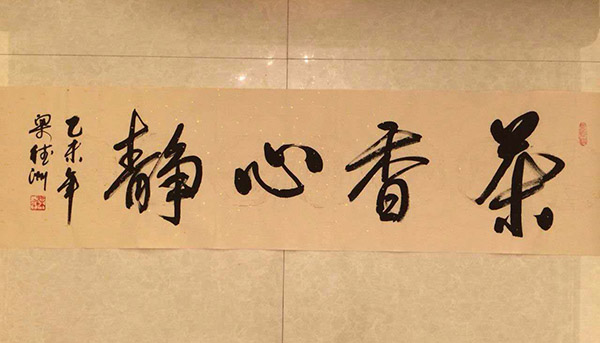 茶香心静
乙未年
梁德洲